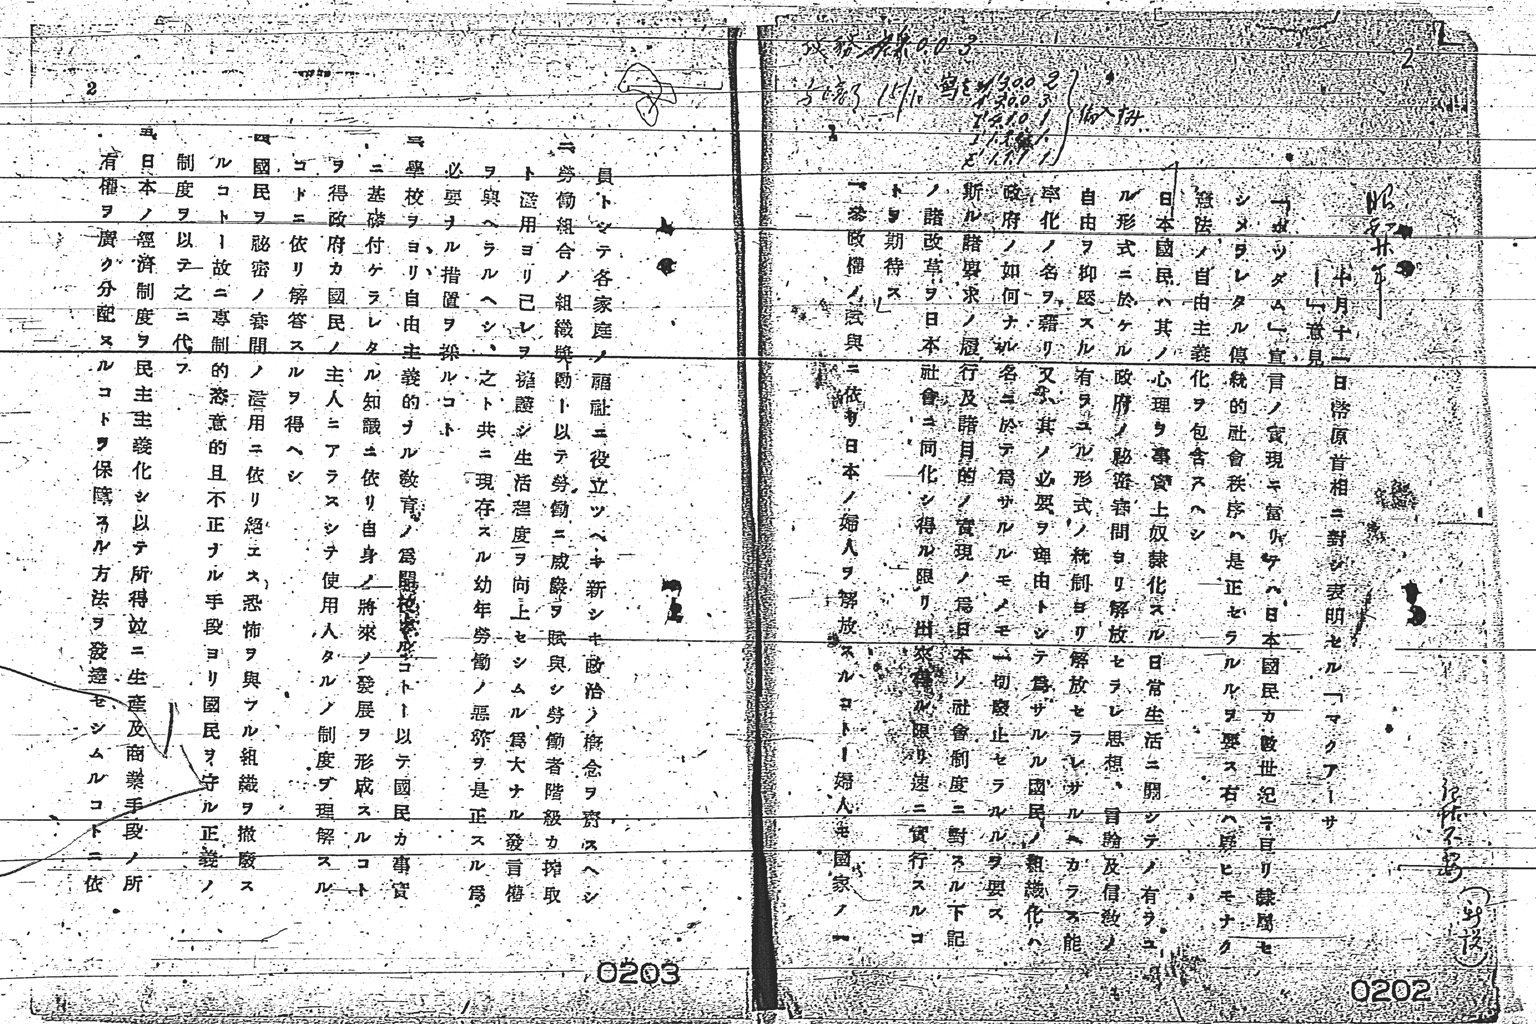 2
昭和廿年
十月十一日幣原首相ニ對シ表明セル「マクアーサ
ー」意見
「ポツダム」宣言ノ實現ニ當リテハ日本國民カ數世紀ニ亘リ隷屬セ
シメラレタル傳統的社會秩序ハ是正セラルルヲ要ス右ハ疑ヒモナク
憲法ノ自由主義化ヲ包含スヘシ
日本國民ハ其ノ心理ヲ事實上奴隷化スル日常生活ニ關シテノ有ラユ
ル形式ニ於ケル政府ノ祕密審問ヨリ解放セラレ思想、言論及信敎ノ
自由ヲ抑壓スル有ラユル形式ノ統制ヨリ解放セラレサルヘカラス能
率化ノ名ヲ藉リ又ハ其ノ必要ヲ理由トシテ爲サルル國民ノ組織化ハ
政府ノ如何ナル名ニ於テ爲サルルモノモ一切廢止セラルルヲ要ス
斯ル諸要求ノ履行及諸目的ノ實現ノ爲日本ノ社會制度ニ對スル下記
ノ諸改革ヲ日本社會ニ同化シ得ル限リ出來得ル限リ速ニ實行スルコ
トヲ期待ス」
一、參政權ノ賦與ニ依リ日本ノ婦人ヲ解放スルコト―婦人モ國家ノ一
0202
員トシテ各家庭ノ福祉ニ役立ツヘキ新シキ政治ノ槪念ヲ齎スヘシ
二、勞働組合ノ組織奬勵―以テ勞働ニ威嚴ヲ賦與シ勞働者階級カ搾取
ト濫用ヨリ己レヲ擁護シ生活程度ヲ向上セシムル爲大ナル發言權
ヲ與ヘラルヘシ、之ト共ニ現存スル幼年勞働ノ惡弊ヲ是正スル爲
必要ナル措置ヲ採ルコト
三、學校ヲヨリ自由主義的ナル敎育ノ爲開校スルコト―以テ國民カ事實
ニ基礎付ケラレタル知識ニ依リ自身ノ將來ノ發展ヲ形成スルコト
ヲ得政府カ國民ノ主人ニアラスシテ使用人タルノ制度ヲ理解スル
コトニ依リ解答スルヲ得ヘシ
四、國民ヲ祕密ノ審問ノ濫用ニ依リ絕エス恐怖ヲ與フル組織ヲ撤廢ス
ルコト―故ニ專制的恣意的且不正ナル手段ヨリ國民ヲ守ル正義ノ
制度ヲ以テ之ニ代フ
五、日本ノ經濟制度ヲ民主主義化シ以テ所得竝ニ生產及商業手段ノ所
有權ヲ廣ク分配スルコトヲ保障スル方法ヲ發達セシムルコトニ依
2
0203